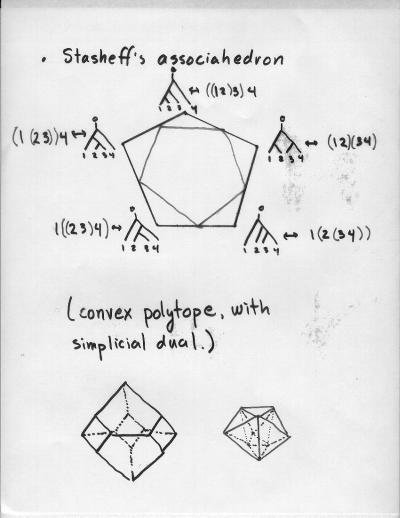 • Stasheff's associahedron
0
↔ ((12)3)4
1 2 3 4
(1(23))4 ↔
0
1 2 3 4
0
↔ (12)(34)
1 2 3 4
1((23)4) ↔
0
1 2 3 4
0
↔ 1(2(34))
1 2 3 4
(convex polytope, with
simplicial dual.)